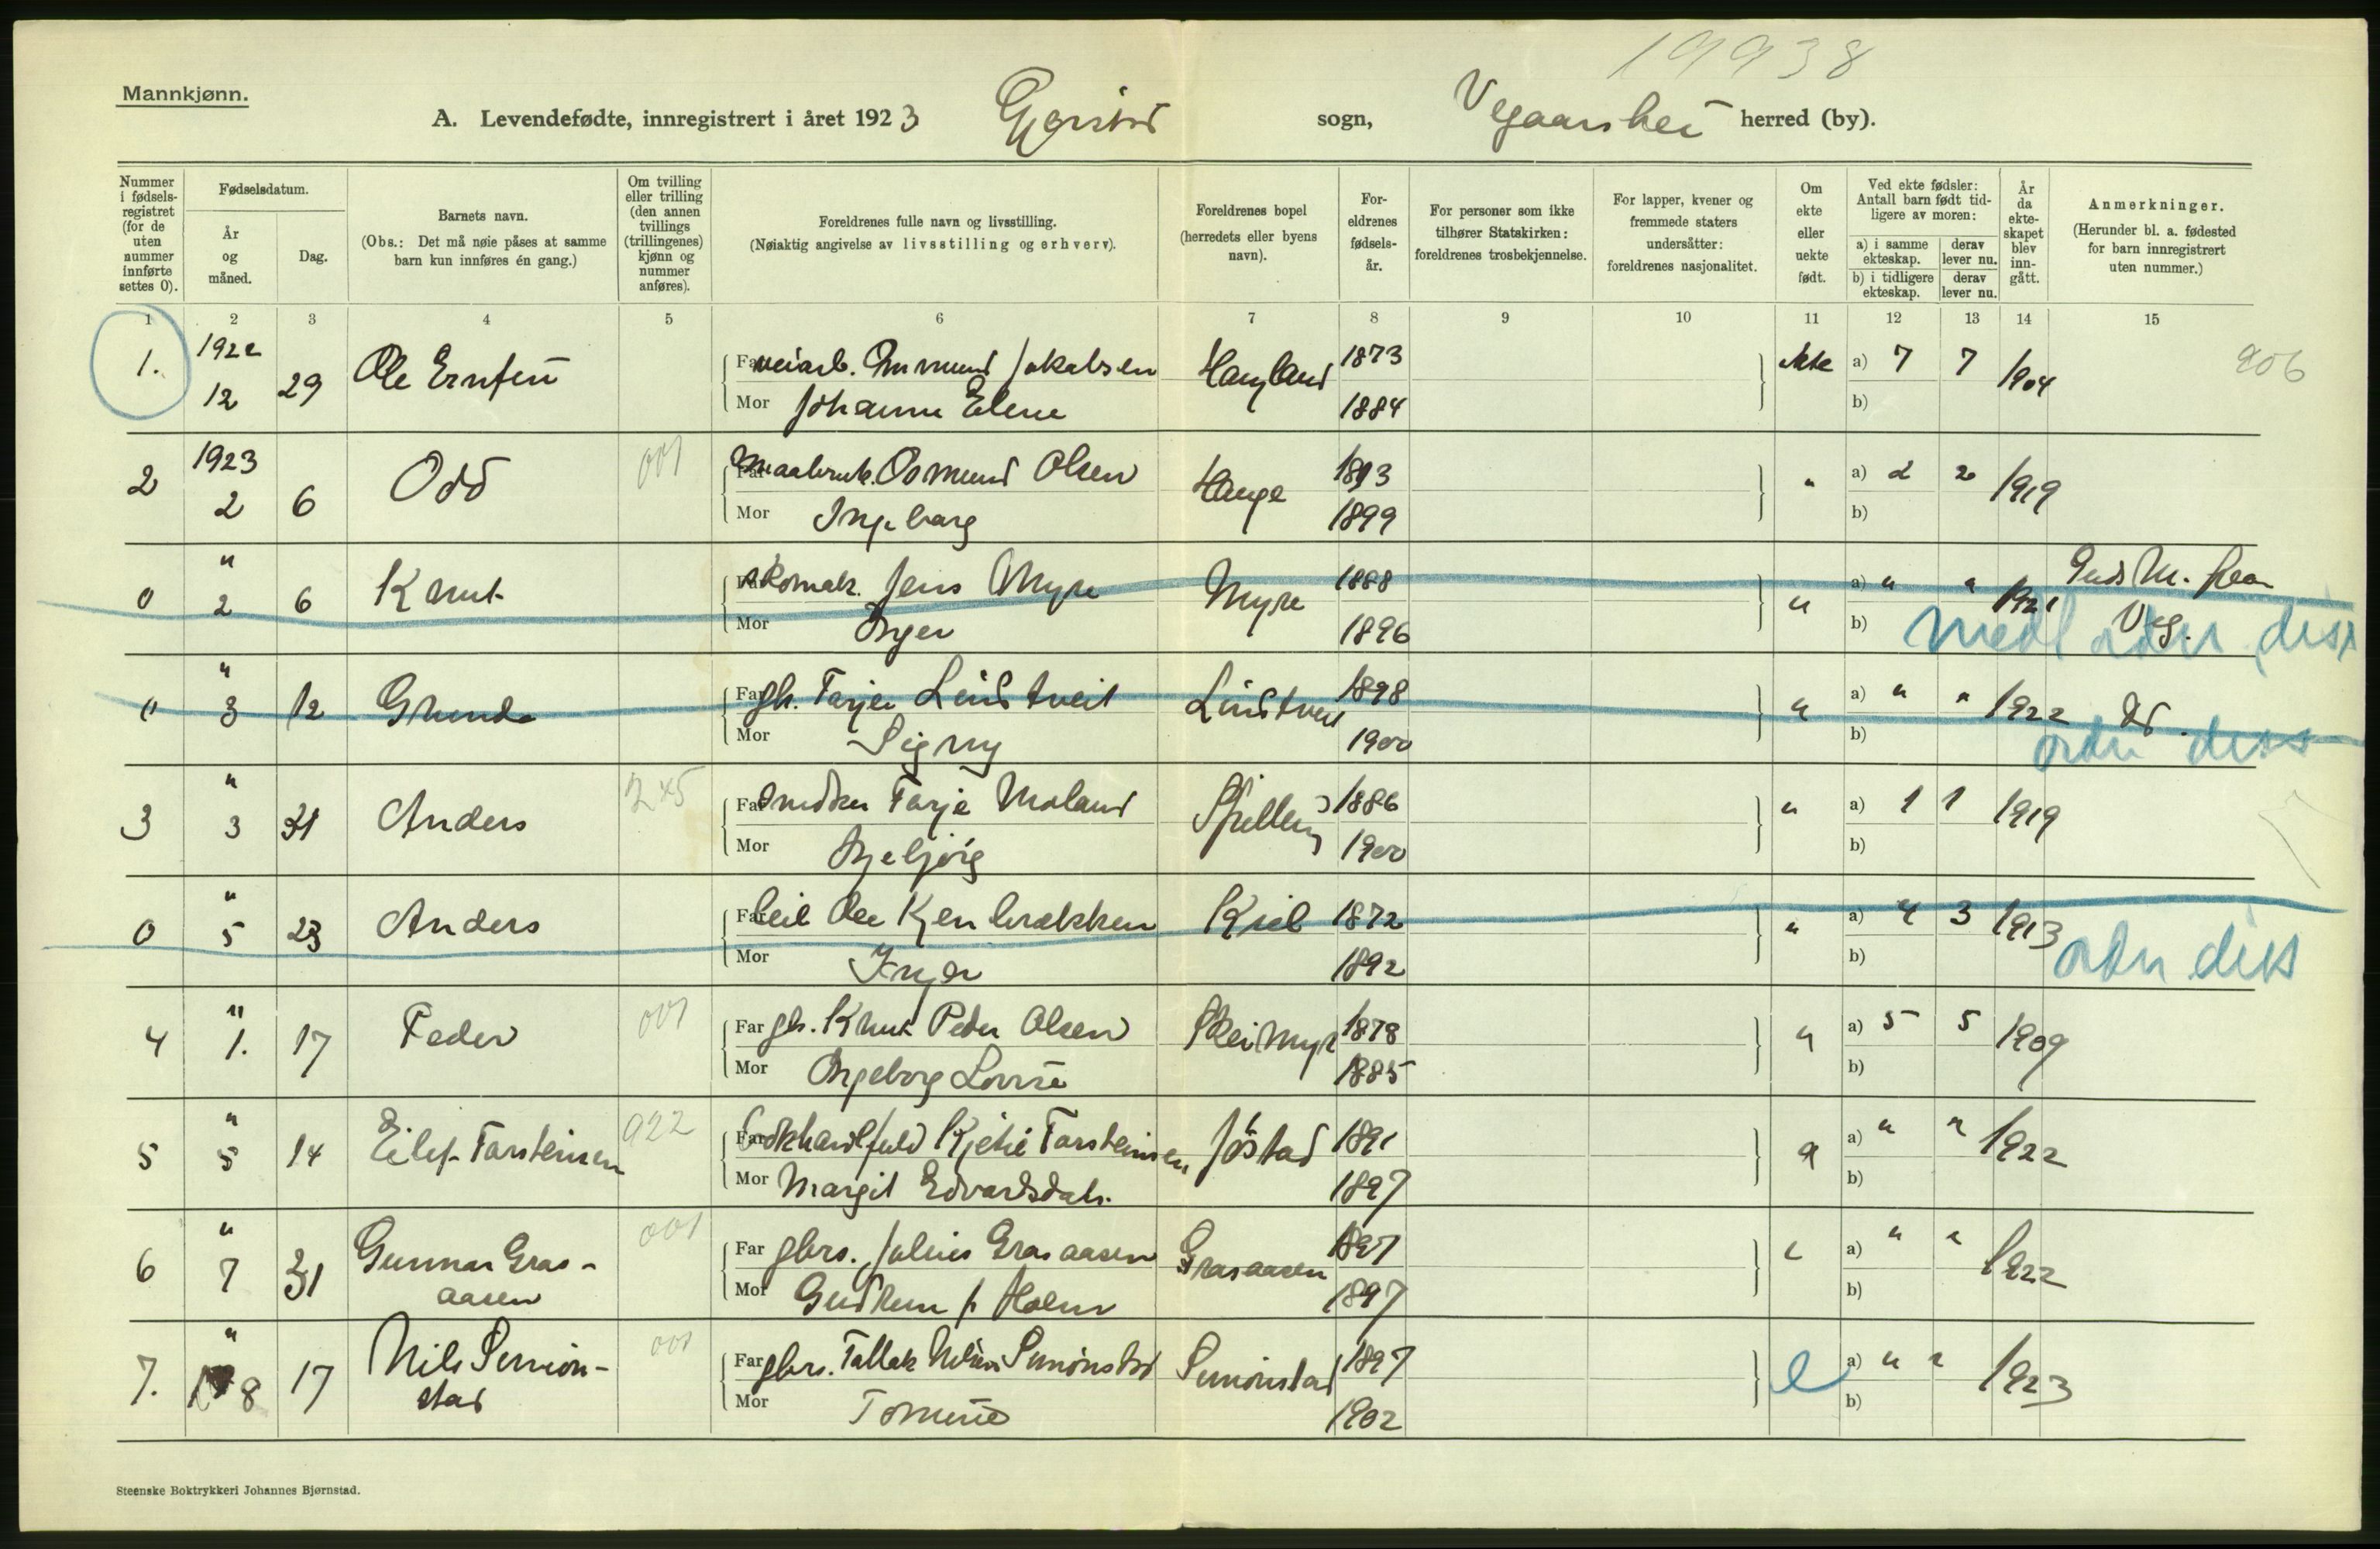 19938
Mannkjønn.
A. Levendefødte, innregistrert i året 1923 Gjerstad sogn, Vegaarshei herred (by).
Nummer i fødsels-registret (for de uten nummer innførte settes 0).
Fødselsdatum.
År og måned.
Dag.
Barnets navn.
(Obs.: Det må nøie påses at samme barn kun innføres én gang.)
Om tvilling eller trilling (den annen tvillings (trillingenes) kjønn og nummer anføres).
Foreldrenes fulle navn og livsstilling.
(Nøiaktig angivelse av livsstilling og erhverv).
Foreldrenes bopel (herredets eller byens navn).
For-eldrenes fødsels-år.
For personer som ikke tilhører Statskirken: foreldrenes trosbekjennelse.
For lapper, kvener og fremmede staters undersåtter: foreldrenes nasjonalitet.
Om ekte eller uekte født.
Ved ekte fødsler: Antall barn født tid-ligere av moren:
a) i samme ekteskap. derav lever nu.
b) i tidligere ekteskap. derav lever nu.
År da ekte-skapet blev inn-gått.
Anmerkninger.
(Herunder bl. a. fødested for barn innregistrert uten nummer.)
1 2 3 4 5 6 7 8 9 10 11 12 13 14 15
1. 1922 12 29 Ole Far veiarb. Jakobsen 1873 ekte a) 7 7 1904 906
Mor Johanne Elene 1884 b)
2 1923 2 6 Odd 001 Far Osmund Olsen Hauge 1893 " a) 2 2 1919
Mor Ingeborg 1899 b)
0 " 2 6 Knut Far skomak. Jens Myre Myre 1888 " a) " " 1921
Mor Inger 1896 b) Veg.
0 " 3 12 Far gb. Tarjei Lindtveit Lindtveit 1898 " a) " " 1922 do
Mor Signy 1900 b)
3 " 3 31 Anders 245 Far Tarje Moland 1886 " a) 1 1 1919
Mor Ingebjörg 1900 b)
0 " 5 23 Anders Far Ole 1872 " a) 4 3 1913
Mor Inger 1892 b)
4 " 1. 17 Peder 001 Far gb. Knut Peder Olsen Skeimyr 1878 " a) 5 5 1909
Mor Ingeborg Lovise 1885 b)
5 " 5 14 Eilef Torsteinsen 922 Far Torsteinsen Jöstad 1891 " a) " " 1922
Mor Margit Edvardsdatr. 1897 b)
6 " 7 31 Gunnar Gras-aasen 001 Far gbrs. Julius Grasaasen Grasaasen 1897 " a) " " 1922
Mor Gudrun f. Holm 1897 b)
7. " 8 17 Nils Simon-stad 001 Far gbrs. Tallak Nilsen Simonstad Simonstad 1897 e a) " " 1923
Mor Tomine 1902 b)
Steenske Boktrykkeri Johannes Bjørnstad.